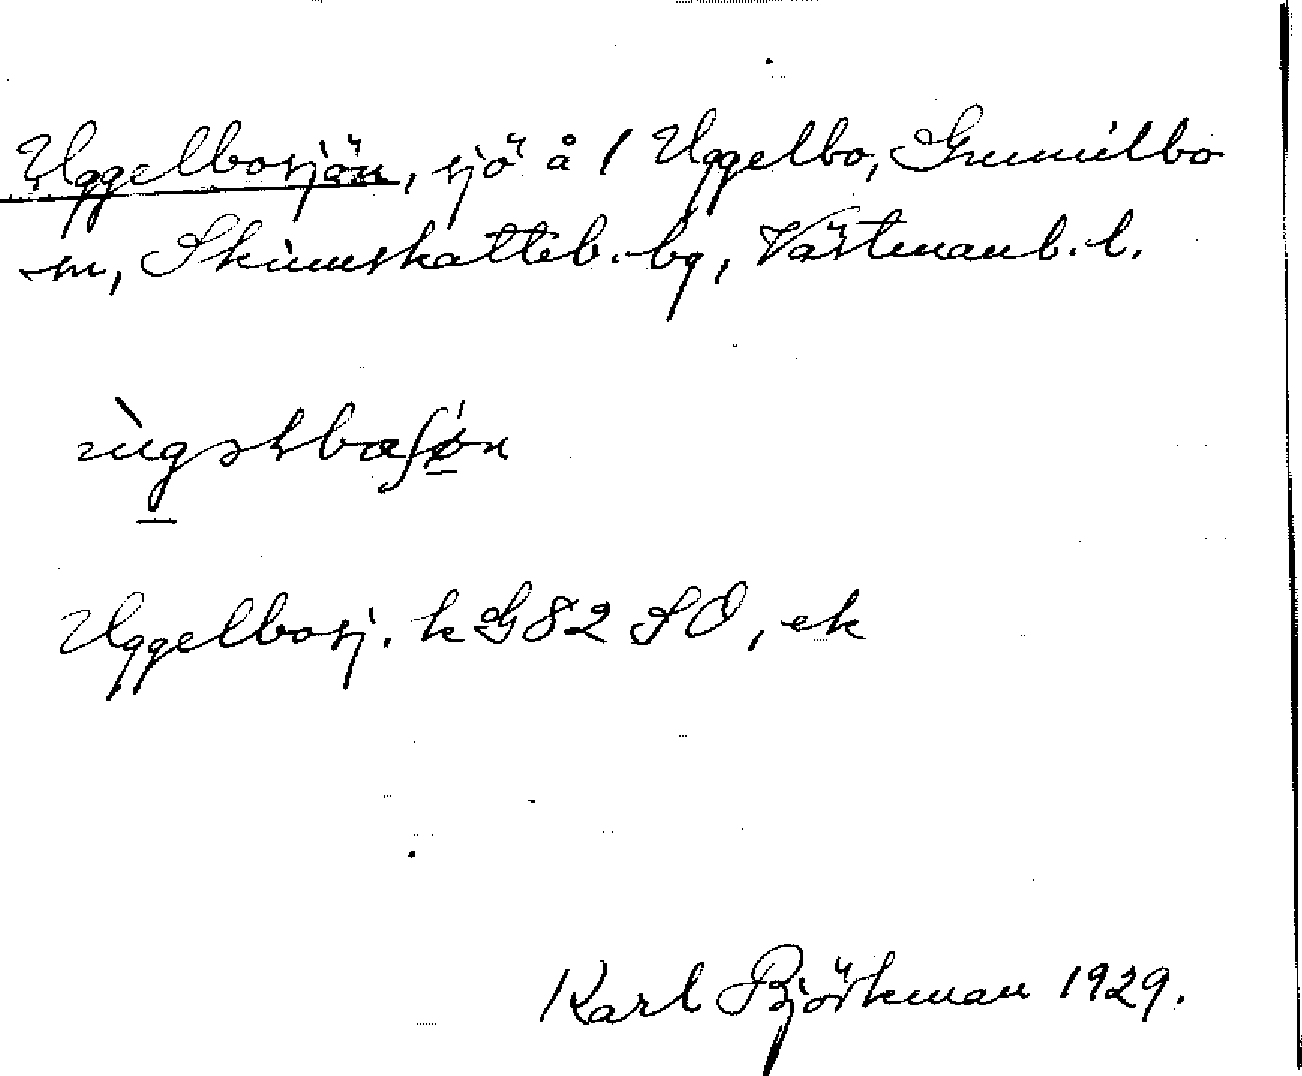 Uggelbosjön, sjö å 1 Uggelbo, Gunnilbo
sn, Skinnskatteb. bg, Västmanl. l.
Uggelbosj. k G 82 SO, ek
Karl Björkman 1929.